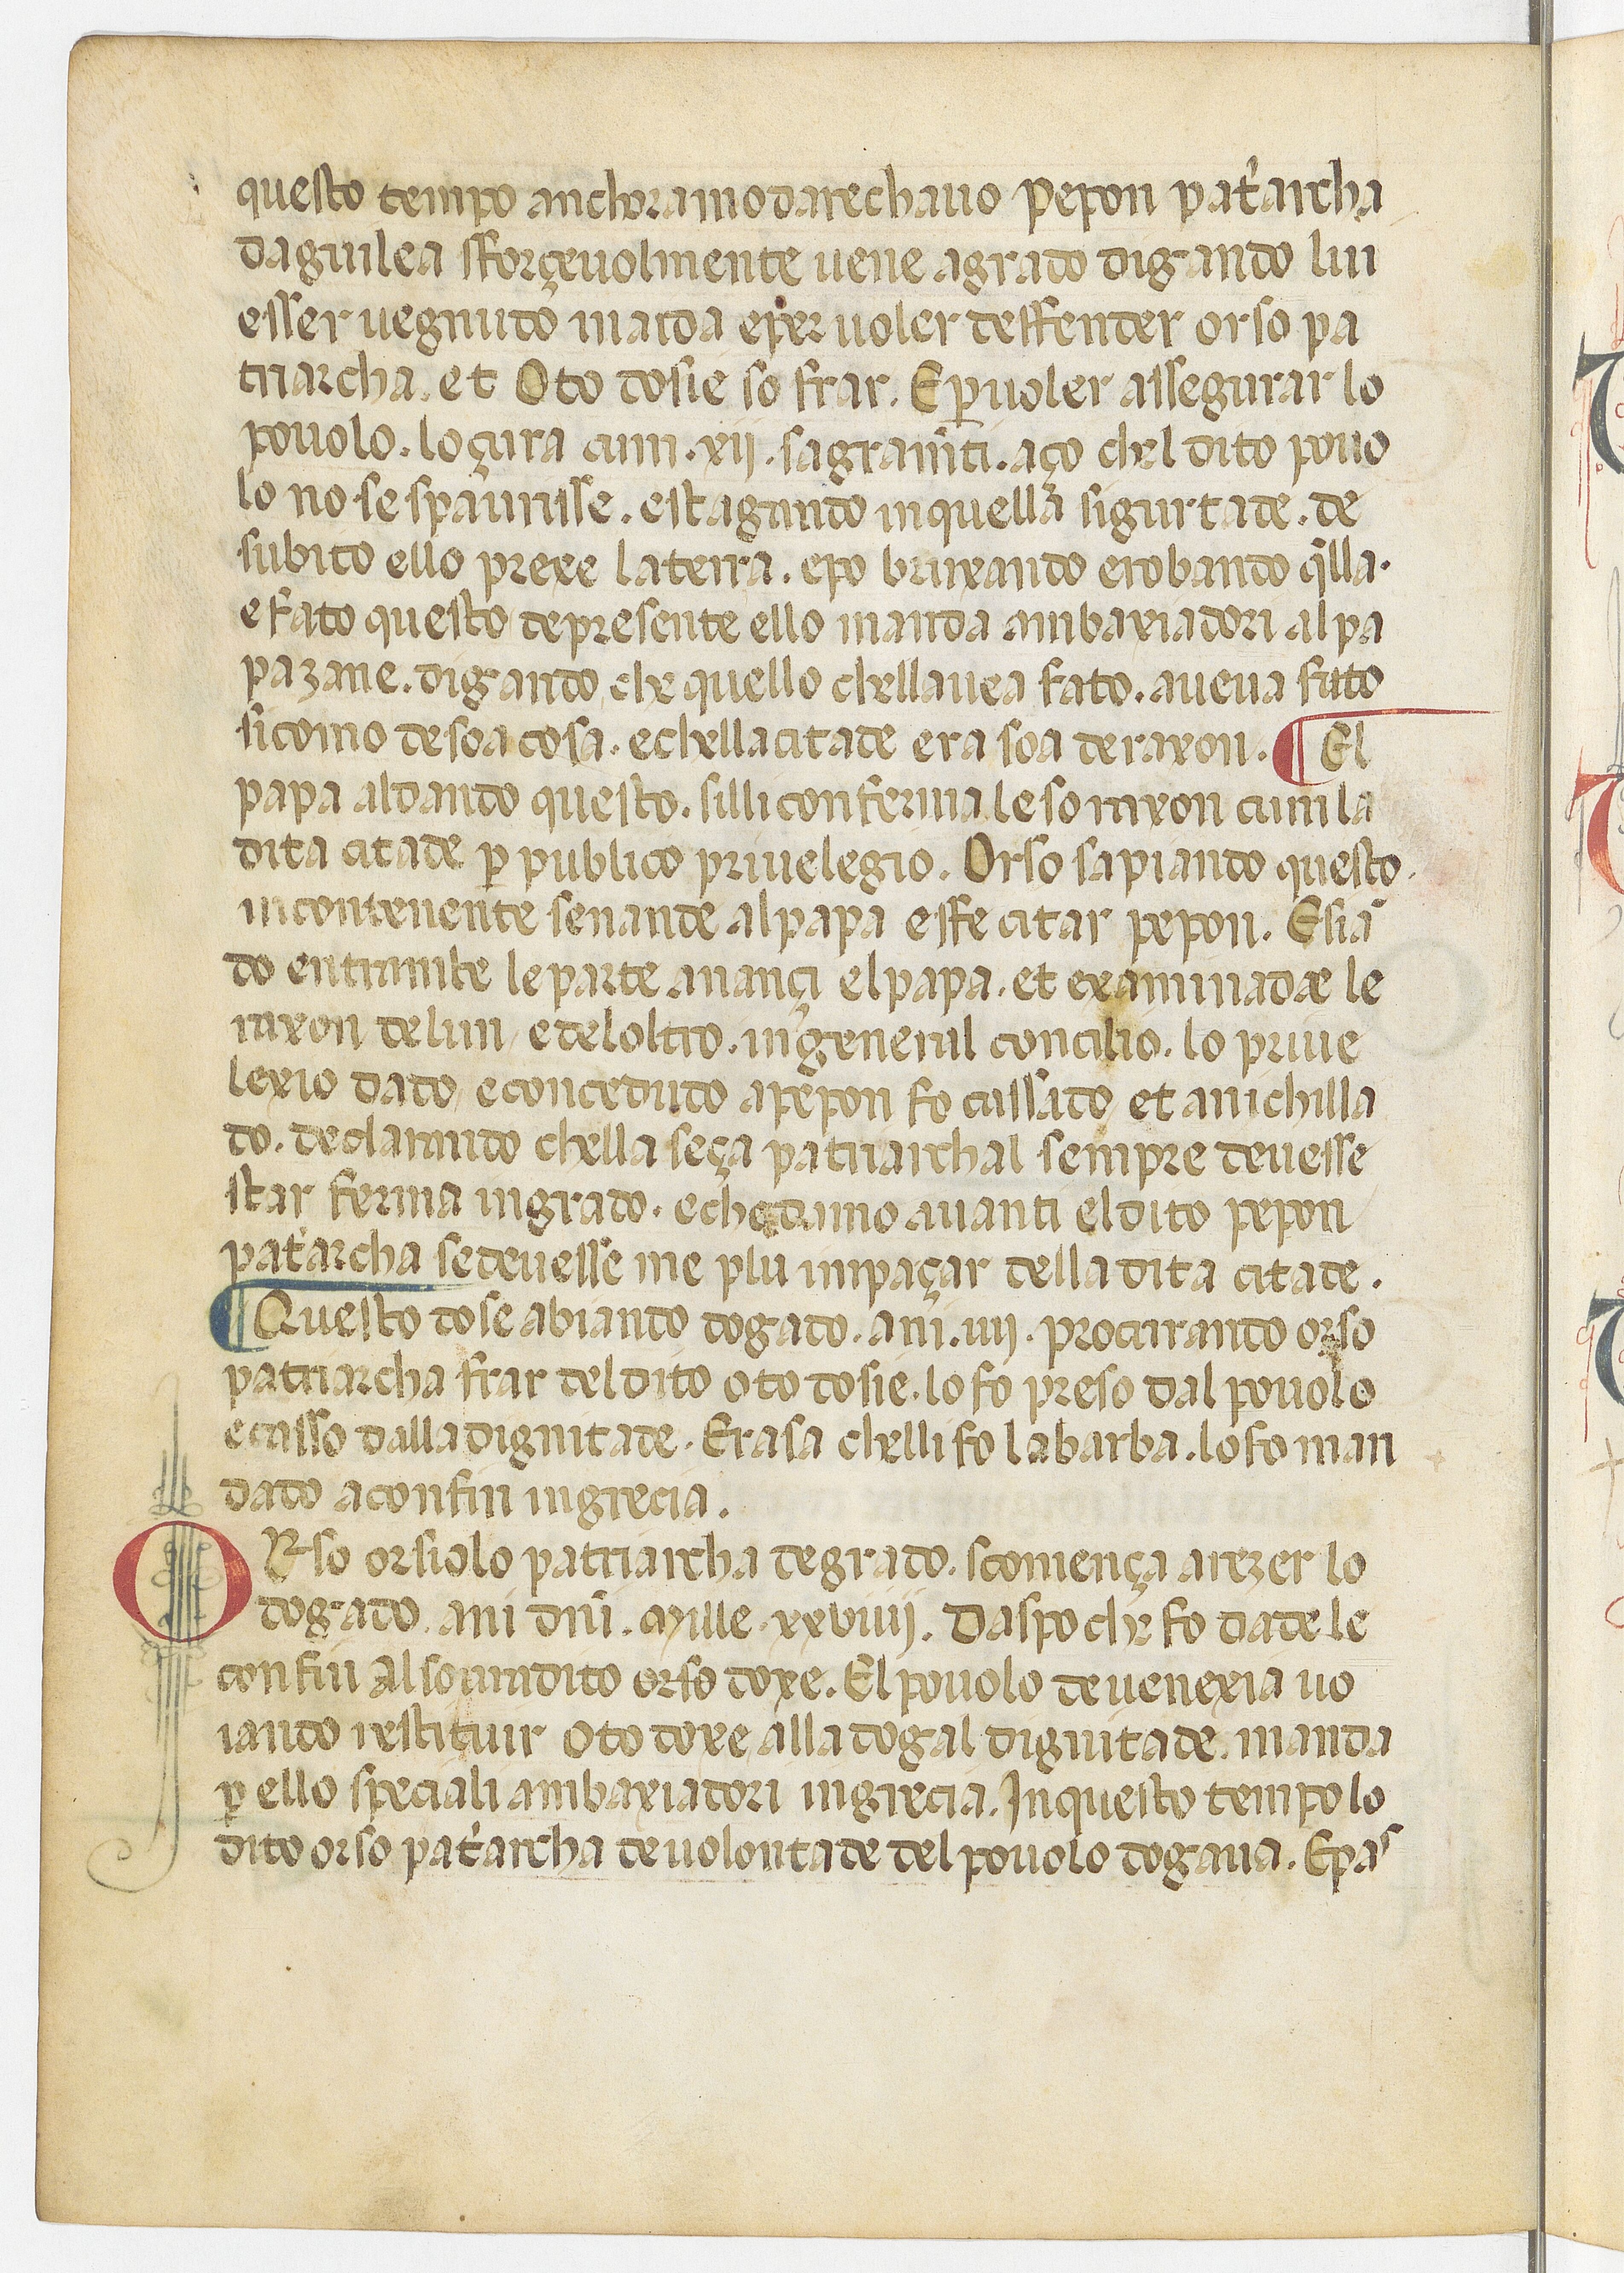 questo tempo anchora mo da rechauo Pepon pat'archa
daguilea sforçeuolmente uene agrado digando lui
esser uegnudo in aida eper uoler deffender orso pa
triarcha. et Oto dosie so frar. E ꝑ uoler assegurar lo
pouolo. lo çura cum .xij. sagram̃ti. aço chel dito pouo
lo no se spaurisse. e stagando in quella sigurtade. de
subito ello prexe la terra. epo bruxando erobando q̃lla.
e fato questo depresente ello manda ambaxiadori al pa
pa zane. digando che quello chellauea fato. aueua fato
sicomo de soa cosa. e chella citade era soa de raxon. ¶ El
papa aldando questo. silli conferma le so raxon cum la
dita citade ꝑ publico priuelegio. Orso sapiando questo.
incontenente se nande al papa e ffe citar pepon. E siã
do entrambe le parte auançi el papa. et examinadæ le
raxon de lui e del oltro. in general concilio. lo priue
lexio dado e concedudo a pepon fo cassado et anichilla
do. declarando chella seça patriarchal sempre deuesse
star ferma in grado. e che da mo auanti el dito pepon
pat'archa se deuesse me plu impaçar della dita citade.
¶ Questo dose abiando dogado. ani. iiij. procurando orso
patriarcha frar del dito oto dosie. lo fo preso dal pouolo
e casso dalla dignitade. E rasa chelli fo la barba. lo fo man
dado a confin in grecia.
ORso orsiolo patriarcha de grado. scomença a rezer lo
dogado. ani dñi. Mille. xxviiij. Daspo che fo dade le
confin al soura dito orso doxe. El pouolo de uenexia uo
iando restituir oto doxe alla dogal dignitade. manda
ꝑ ello speciali ambaxiadori in grecia. In questo tempo lo
dito orso pat'archa de uolontade del pouolo dogaua. E pas